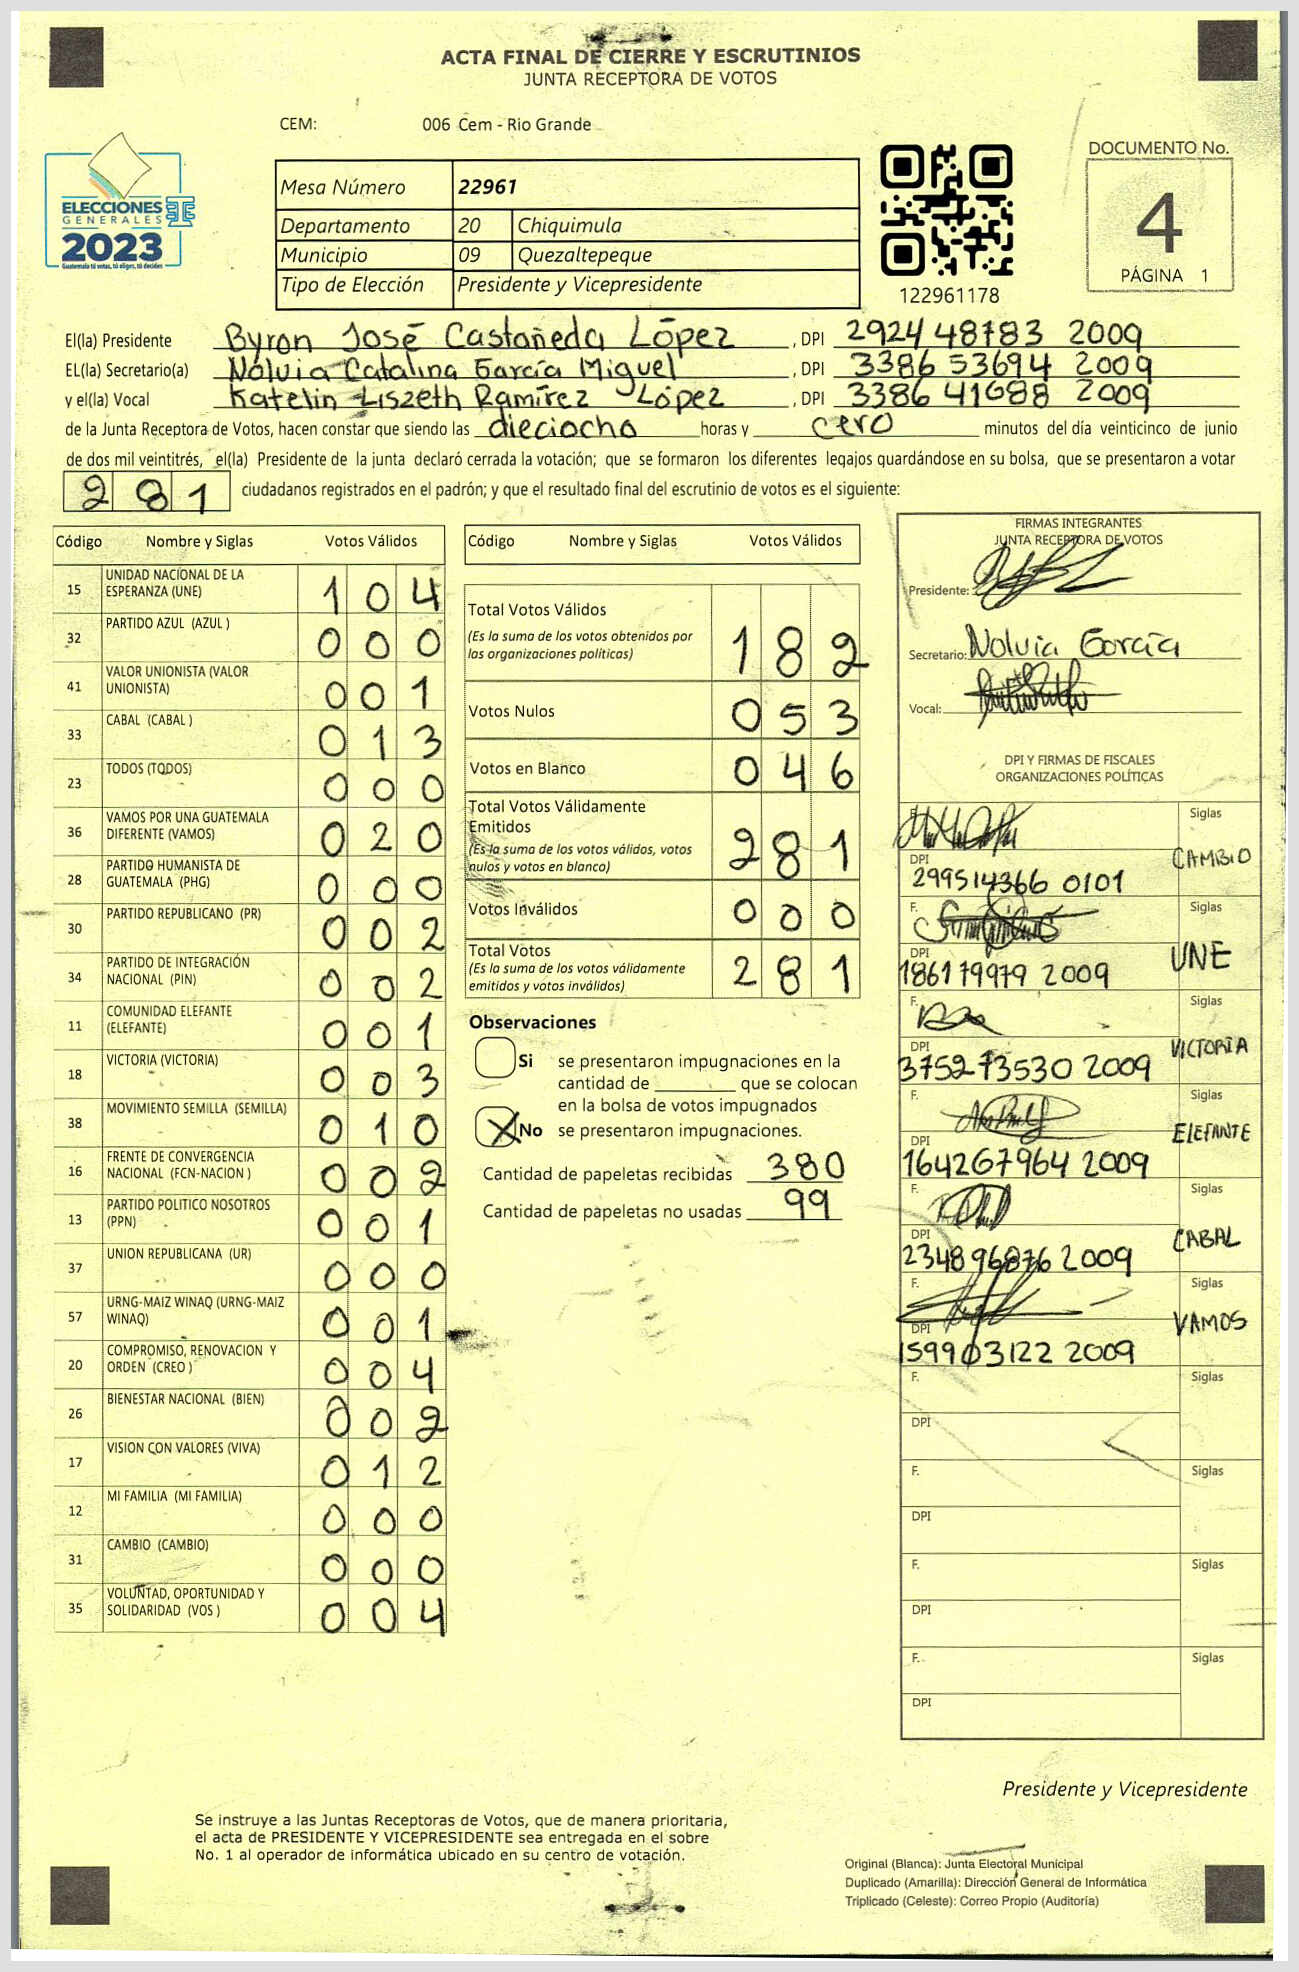 ACTA FINAL DE CIERRE Y ESCRUTINIOS
JUNTA RECEPTORA DE VOTOS
CEM: 006 Cem - Rio Grande
ELECCIONES
GENERALES
2023
Guatemala tú votas, tú eliges, tú decides
Mesa Número 22961
Departamento 20 Chiquimula
Municipio 09 Quezaltepeque
Tipo de Elección Presidente y Vicepresidente
122961178
DOCUMENTO No.
4
PÁGINA 1
El(la) Presidente Byron José Castañeda López , DPI 2924 48783 2009
EL(la) Secretario(a) Nolvia Catalina García Miguel , DPI 3386 53694 2009
y el(la) Vocal Katelin Liszeth Ramírez López , DPI 3386 41688 2009
de la Junta Receptora de Votos, hacen constar que siendo las dieciocho horas y cero minutos del día veinticinco de junio
de dos mil veintitrés, el(la) Presidente de la junta declaró cerrada la votación; que se formaron los diferentes legajos quardándose en su bolsa, que se presentaron a votar
281 ciudadanos registrados en el padrón; y que el resultado final del escrutinio de votos es el siguiente:
Código Nombre y Siglas Votos Válidos
15 UNIDAD NACIONAL DE LA ESPERANZA (UNE) 104
32 PARTIDO AZUL (AZUL ) 000
41 VALOR UNIONISTA (VALOR UNIONISTA) 001
33 CABAL (CABAL ) 013
23 TODOS (TODOS) 000
36 VAMOS POR UNA GUATEMALA DIFERENTE (VAMOS) 020
28 PARTIDO HUMANISTA DE GUATEMALA (PHG) 000
30 PARTIDO REPUBLICANO (PR) 002
34 PARTIDO DE INTEGRACIÓN NACIONAL (PIN) 002
11 COMUNIDAD ELEFANTE (ELEFANTE) 001
18 VICTORIA (VICTORIA) 003
38 MOVIMIENTO SEMILLA (SEMILLA) 010
16 FRENTE DE CONVERGENCIA NACIONAL (FCN-NACION ) 002
13 PARTIDO POLITICO NOSOTROS (PPN) 001
37 UNION REPUBLICANA (UR) 000
57 URNG-MAIZ WINAQ (URNG-MAIZ WINAQ) 001
20 COMPROMISO, RENOVACION Y ORDEN (CREO ) 004
26 BIENESTAR NACIONAL (BIEN) 002
17 VISION CON VALORES (VIVA) 012
12 MI FAMILIA (MI FAMILIA) 000
31 CAMBIO (CAMBIO) 000
35 VOLUNTAD, OPORTUNIDAD Y SOLIDARIDAD (VOS ) 004
Código Nombre y Siglas Votos Válidos
Total Votos Válidos 182
(Es la suma de los votos obtenidos por
las organizaciones politicas)
Votos Nulos 053
Votos en Blanco 046
Total Votos Válidamente
Emitidos 281
(Es la suma de los votos válidos, votos
nulos y votos en blanco)
Votos Inválidos 000
Total Votos 281
(Es la suma de los votos válidamente
emitidos y votos inválidos)
Observaciones
Si se presentaron impugnaciones en la
cantidad de ________ que se colocan
en la bolsa de votos impugnados
X No se presentaron impugnaciones.
Cantidad de papeletas recibidas 380
Cantidad de papeletas no usadas 99
FIRMAS INTEGRANTES
JUNTA RECEPTORA DE VOTOS
Presidente:
Secretario: Nolvia García
Vocal:
DPI Y FIRMAS DE FISCALES
ORGANIZACIONES POLÍTICAS
F. Siglas
DPI CAMBIO
299514366 0101
F. Siglas
DPI UNE
186179979 2009
F. Siglas
DPI VICTORIA
375273530 2009
F. Siglas
DPI ELEFANTE
164267964 2009
F. Siglas
DPI CABAL
234896876 2009
F. Siglas
DPI VAMOS
159903122 2009
F. Siglas
DPI
F. Siglas
DPI
F. Siglas
DPI
F. Siglas
DPI
Presidente y Vicepresidente
Se instruye a las Juntas Receptoras de Votos, que de manera prioritaria,
el acta de PRESIDENTE Y VICEPRESIDENTE sea entregada en el sobre
No. 1 al operador de informática ubicado en su centro de votación.
Original (Blanca): Junta Electoral Municipal
Duplicado (Amarilla): Dirección General de Informática
Triplicado (Celeste): Correo Propio (Auditoría)